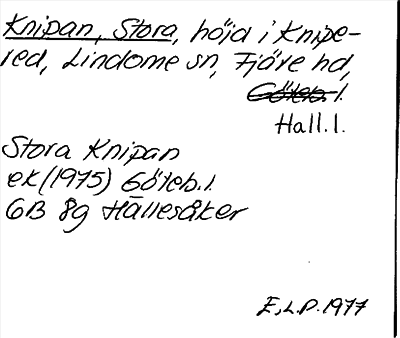 Knipan, Stora, höjd i Knipe-
red, Lindome sn, Fjäre hd,
Göteb. l.
Hall. l.
Stora Knipan
ek (1975) Göteb. l.
GB 8g Hällesåker
E.L.P. 1977